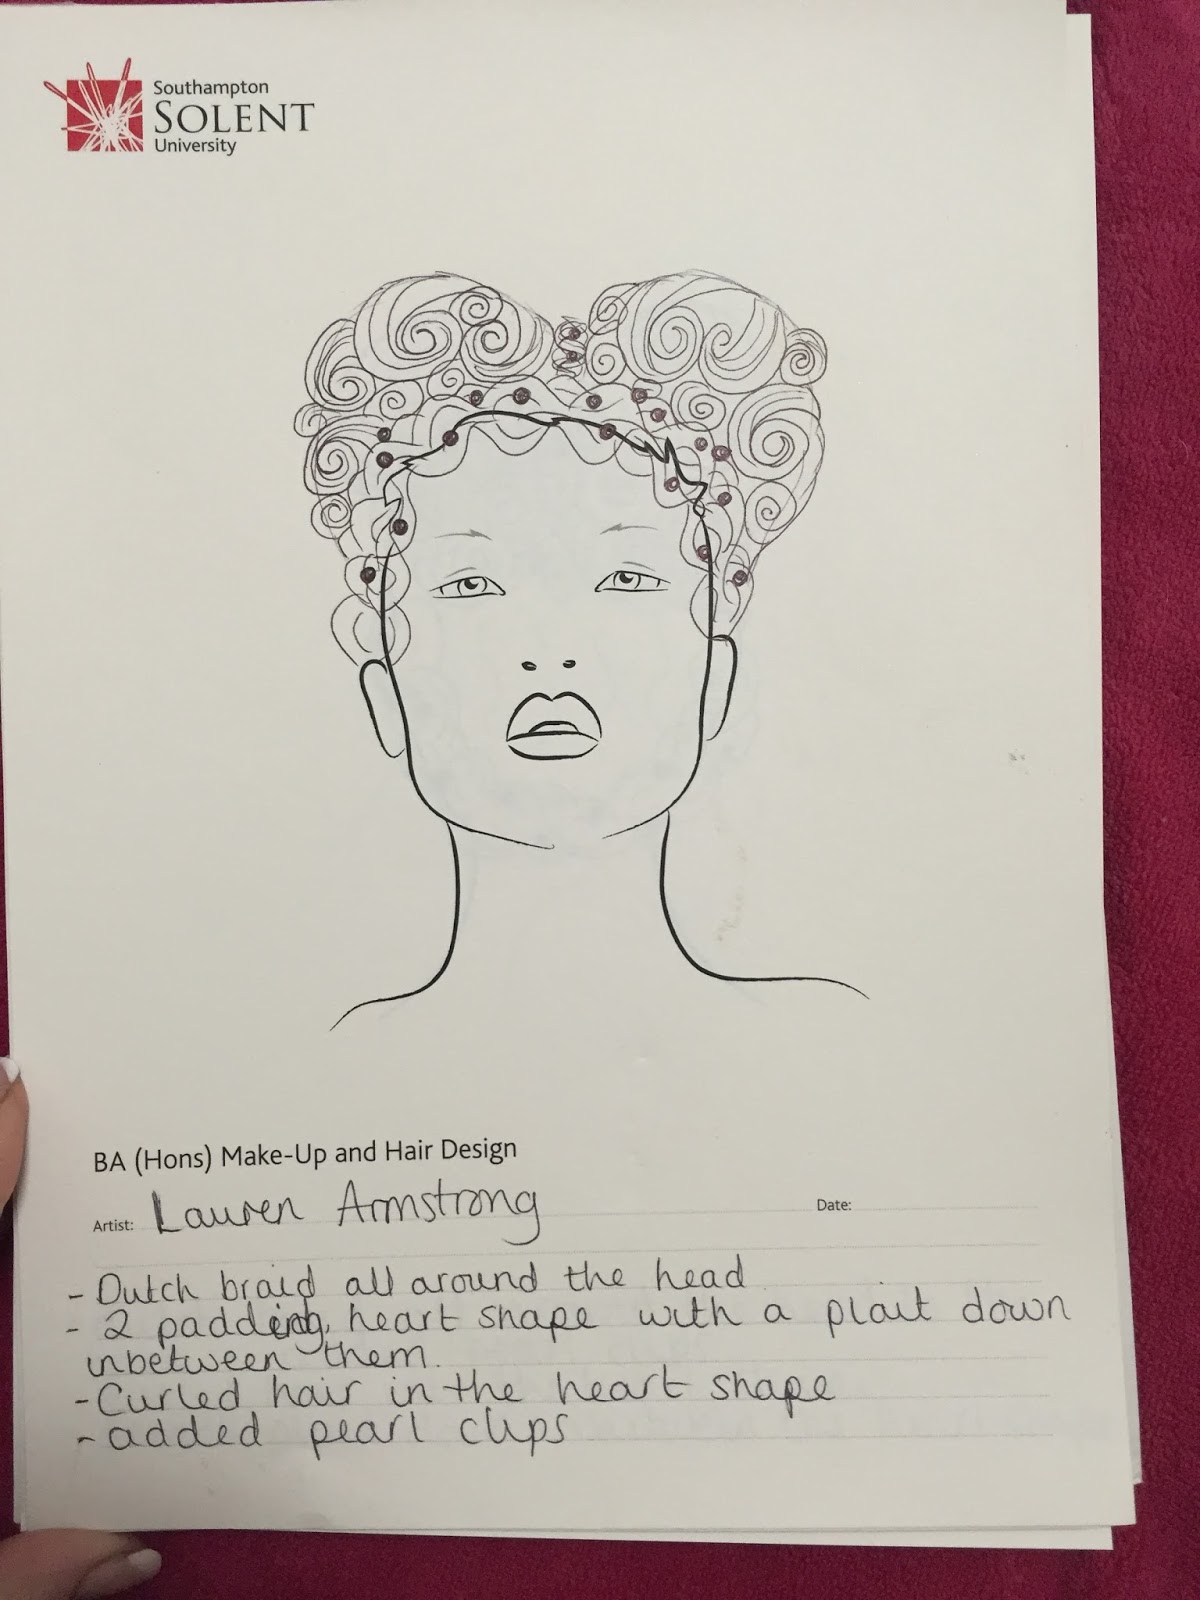 Southampton
SOLENT
University
BA (Hons) Make-Up and Hair Design
Artist: Lauren Armstrong Date:
- Dutch braid all around the head
- 2 padding, heart shape with a plait down
inbetween them.
- Curled hair in the heart shape
- added pearl clips